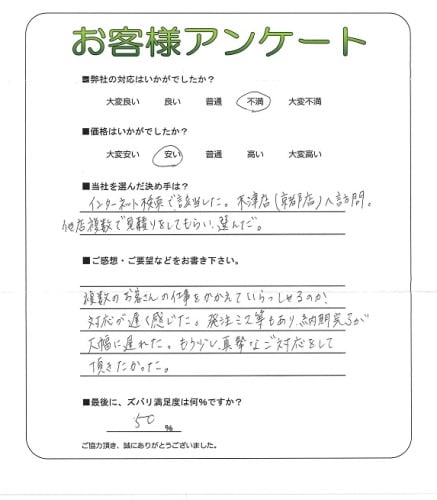 お客様アンケート
■弊社の対応はいかがでしたか?
大変良い 良い 普通 不満 大変不満
■価格はいかがでしたか?
大変安い 安い 普通 高い 大変高い
■当社を選んだ決め手は?
インターネット検索で該当した。木津店(京都店)へ訪問。
他店複数で見積りをしてもらい、選んだ。
■ご感想・ご要望などをお書き下さい。
複数のお客さんの仕事をかかえていらっしゃるのか、
対応が遅く感じた。発注ミス等もあり、納期完了が
大幅に遅れた。もう少し、真摯なご対応をして
頂きたかった。
■最後に、ズバリ満足度は何%ですか?
50 %
ご協力頂き、誠にありがとうございました。